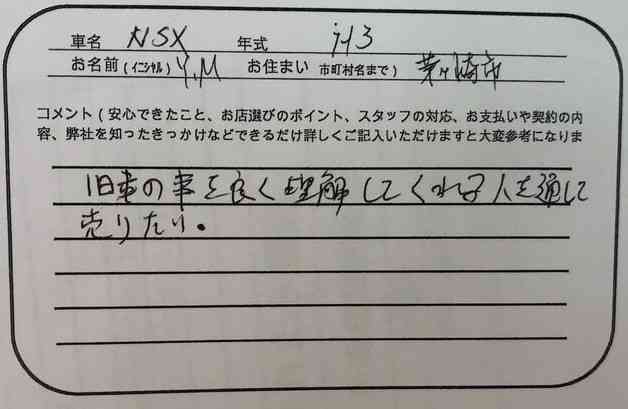 車名 NSX 年式 H3
お名前(イニシャル) Y.M お住まい 市町村名まで) 茅ヶ崎市
コメント(安心できたこと、お店選びのポイント、スタッフの対応、お支払いや契約の内
容、弊社を知ったきっかけなどできるだけ詳しくご記入いただけますと大変参考になりま
旧車の事を良く理解してくれる人を通して
売りたい。